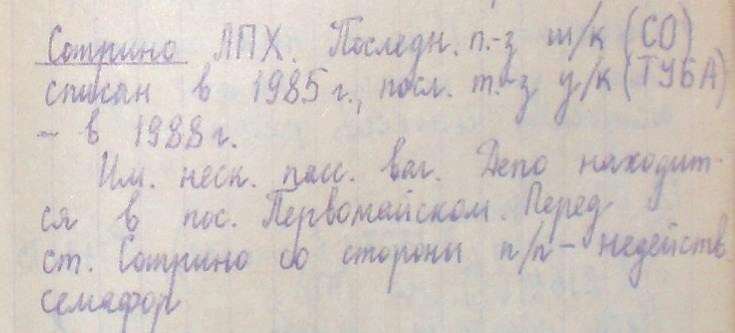 Сотрино ЛПХ. Последн. п.-з ш/к (СО)
списан в 1985 г., посл. т.-з у/к (ТУБА)
– в 1988 г.
Им. неск. пасс. ваг. Депо находит-
ся в пос. Первомайском. Перед
ст. Сотрино со стороны п/п – недейств.
семафор